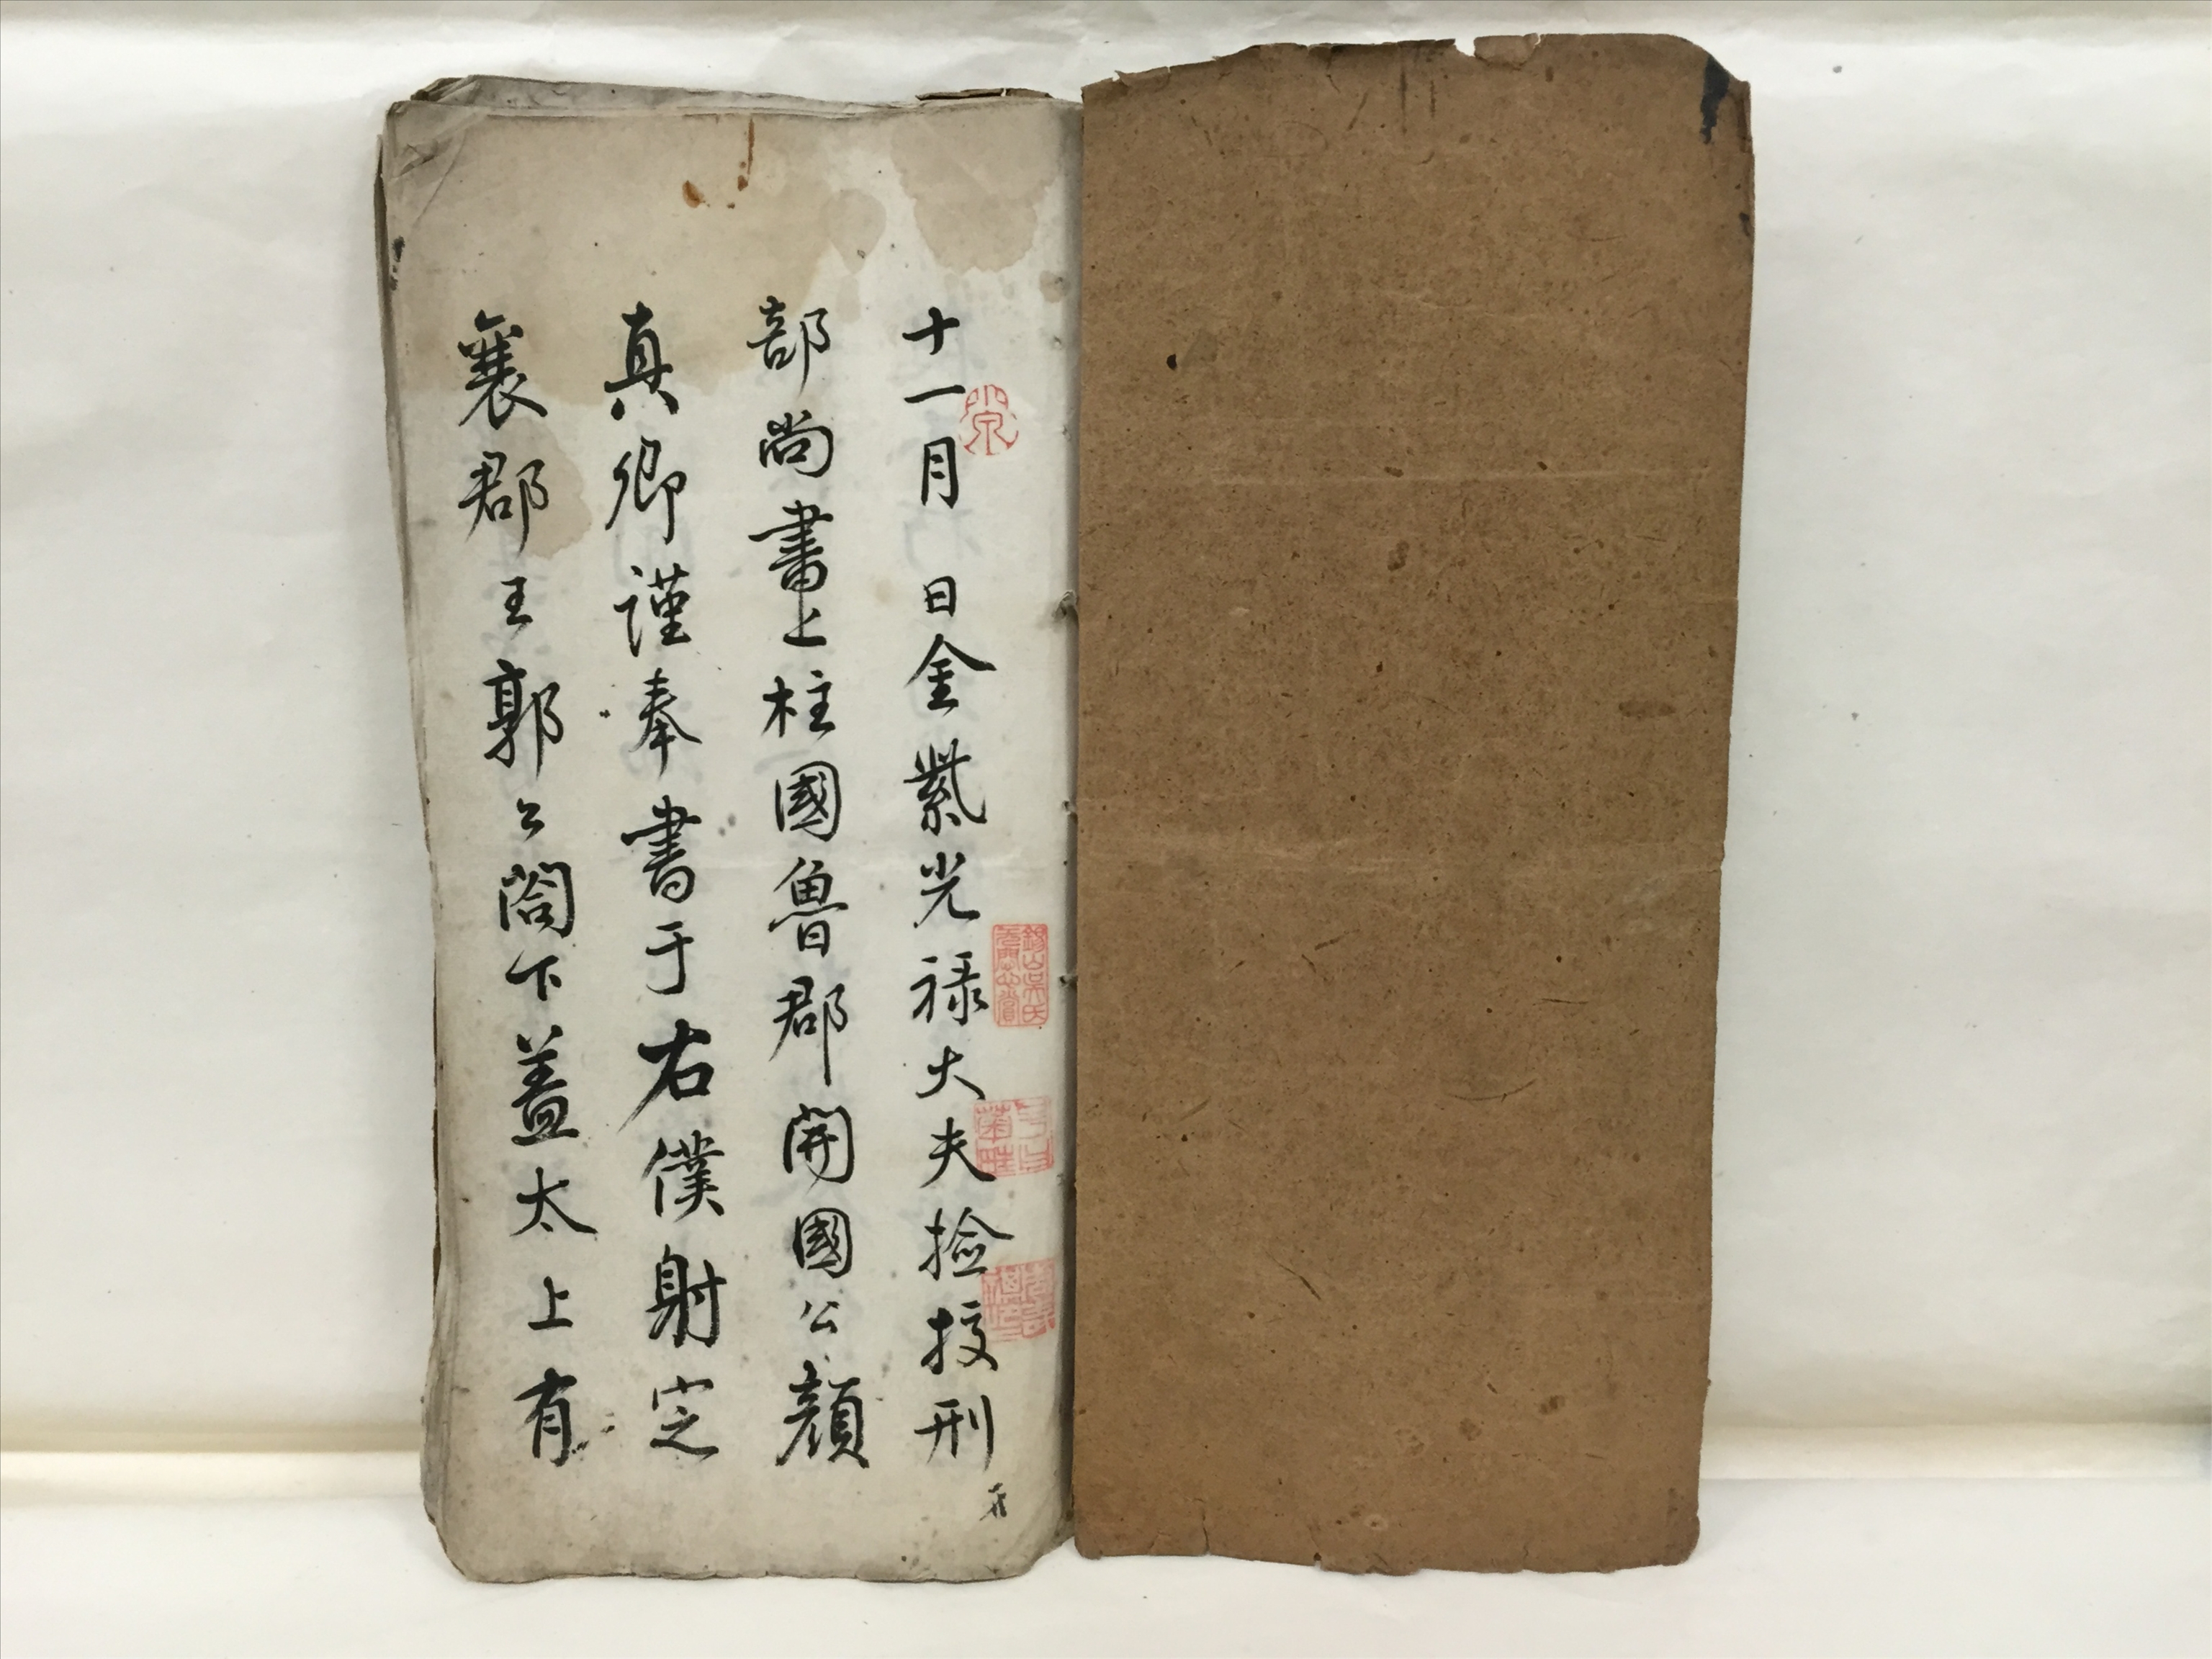 十一月 日金紫光祿大夫撿挍刑
部尚書上柱國魯郡開國公顏
真卿謹奉書于右僕射定
襄郡王郭公閤下蓋太上有